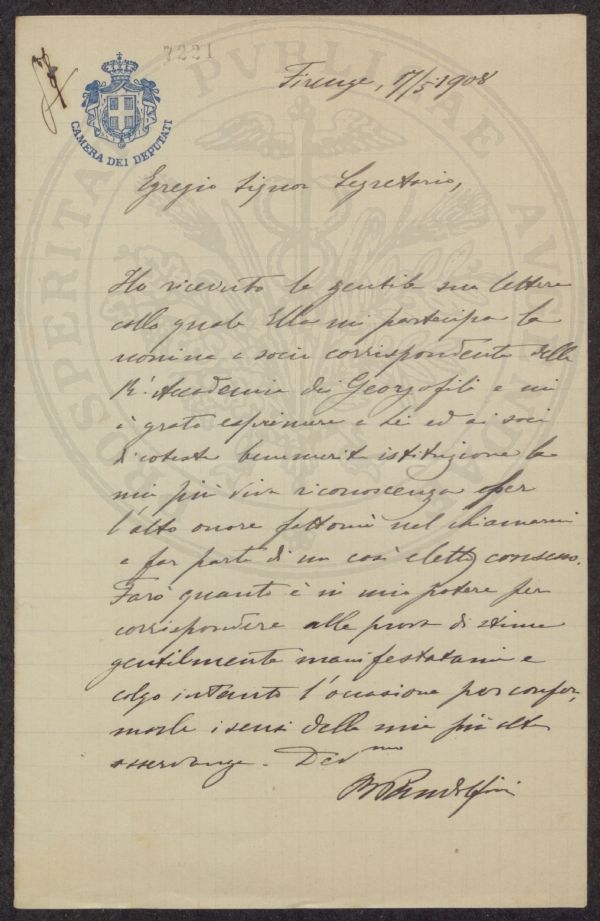 7221
CAMERA DEI DEPUTATI
Firenze, 17/5 1908
Egregio Signor Segretario,
Ho ricevuto la gentile sua lettera
colla quale Ella mi partecipa la
nomina a socio corrispondente della
R. Accademia dei Georgofili e mi
è grato esprimere a Lei ed ai soci
di cotesta benemerita istituzione la
mia più viva riconoscenza per
l'alto onore fattomi nel chiamarmi
a far parte di un così eletto consesso.
Farò quanto è in mio potere per
corrispondere alla prova di stima
gentilmente manifestatami e
colgo intanto l'occasione per confer
marle i sensi della mia più alta
osservanza. Dev mo
Pandolfini
PROSPERITATI PVBLICAE AVGENDAE